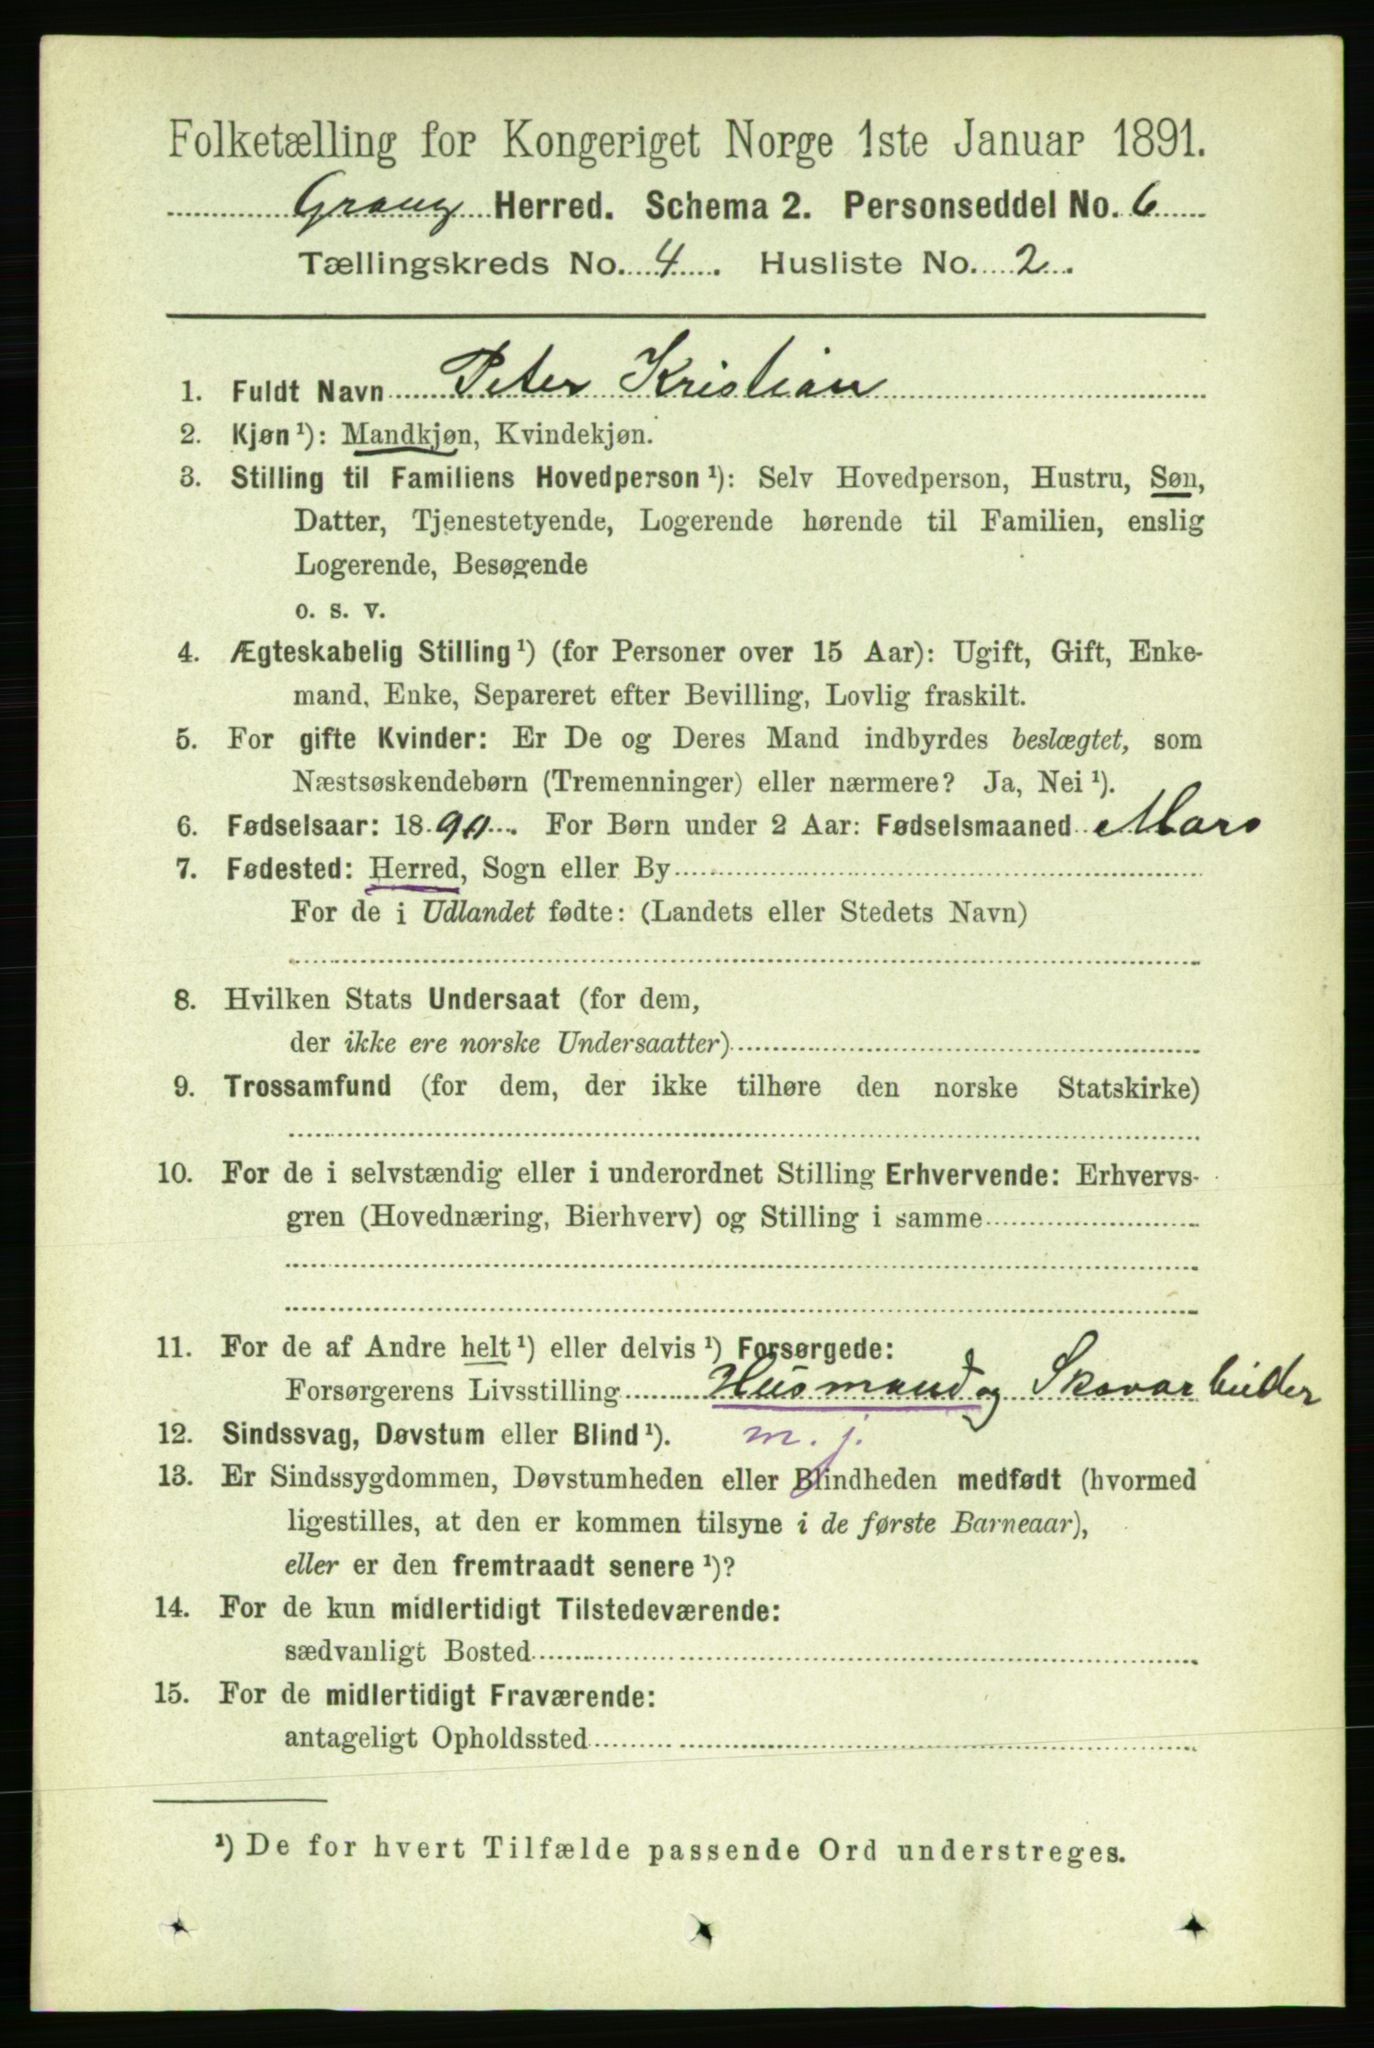 Folketælling for Kongeriget Norge 1ste Januar 1891.
Herred. Schema 2. Personseddel No. 6
Tællingskreds No. 4. Husliste No. 2.
1. Fuldt Navn Peter Kristian
2. Kjøn¹): Mandkjøn, Kvindekjøn.
3. Stilling til Familiens Hovedperson¹): Selv Hovedperson, Hustru, Søn,
Datter, Tjenestetyende, Logerende hørende til Familien, enslig
Logerende, Besøgende
o. s. v.
4. Ægteskabelig Stilling¹) (for Personer over 15 Aar): Ugift, Gift, Enke-
mand, Enke, Separeret efter Bevilling, Lovlig fraskilt.
5. For gifte Kvinder: Er De og Deres Mand indbyrdes beslægtet, som
Næstsøskendebørn (Tremenninger) eller nærmere? Ja, Nei¹).
6. Fødselsaar: 1890. For Børn under 2 Aar: Fødselsmaaned Mars
7. Fødested: Herred, Sogn eller By
For de i Udlandet fødte: (Landets eller Stedets Navn)
8. Hvilken Stats Undersaat (for dem,
der ikke ere norske Undersaatter)
9. Trossamfund (for dem, der ikke tilhøre den norske Statskirke)
10. For de i selvstændig eller i underordnet Stilling Erhvervende: Erhvervs-
gren (Hovednæring, Bierhverv) og Stilling i samme
11. For de af Andre helt¹) eller delvis¹) Forsørgede:
Forsørgerens Livsstilling Husmand og Skovarbeider
12. Sindssvag, Døvstum eller Blind¹). m. j.
13. Er Sindssygdommen, Døvstumheden eller Blindheden medfødt (hvormed
ligestilles, at den er kommen tilsyne i de første Barneaar),
eller er den fremtraadt senere¹)?
14. For de kun midlertidigt Tilstedeværende:
sædvanligt Bosted
15. For de midlertidigt Fraværende:
antageligt Opholdssted
¹) De for hvert Tilfælde passende Ord understreges.